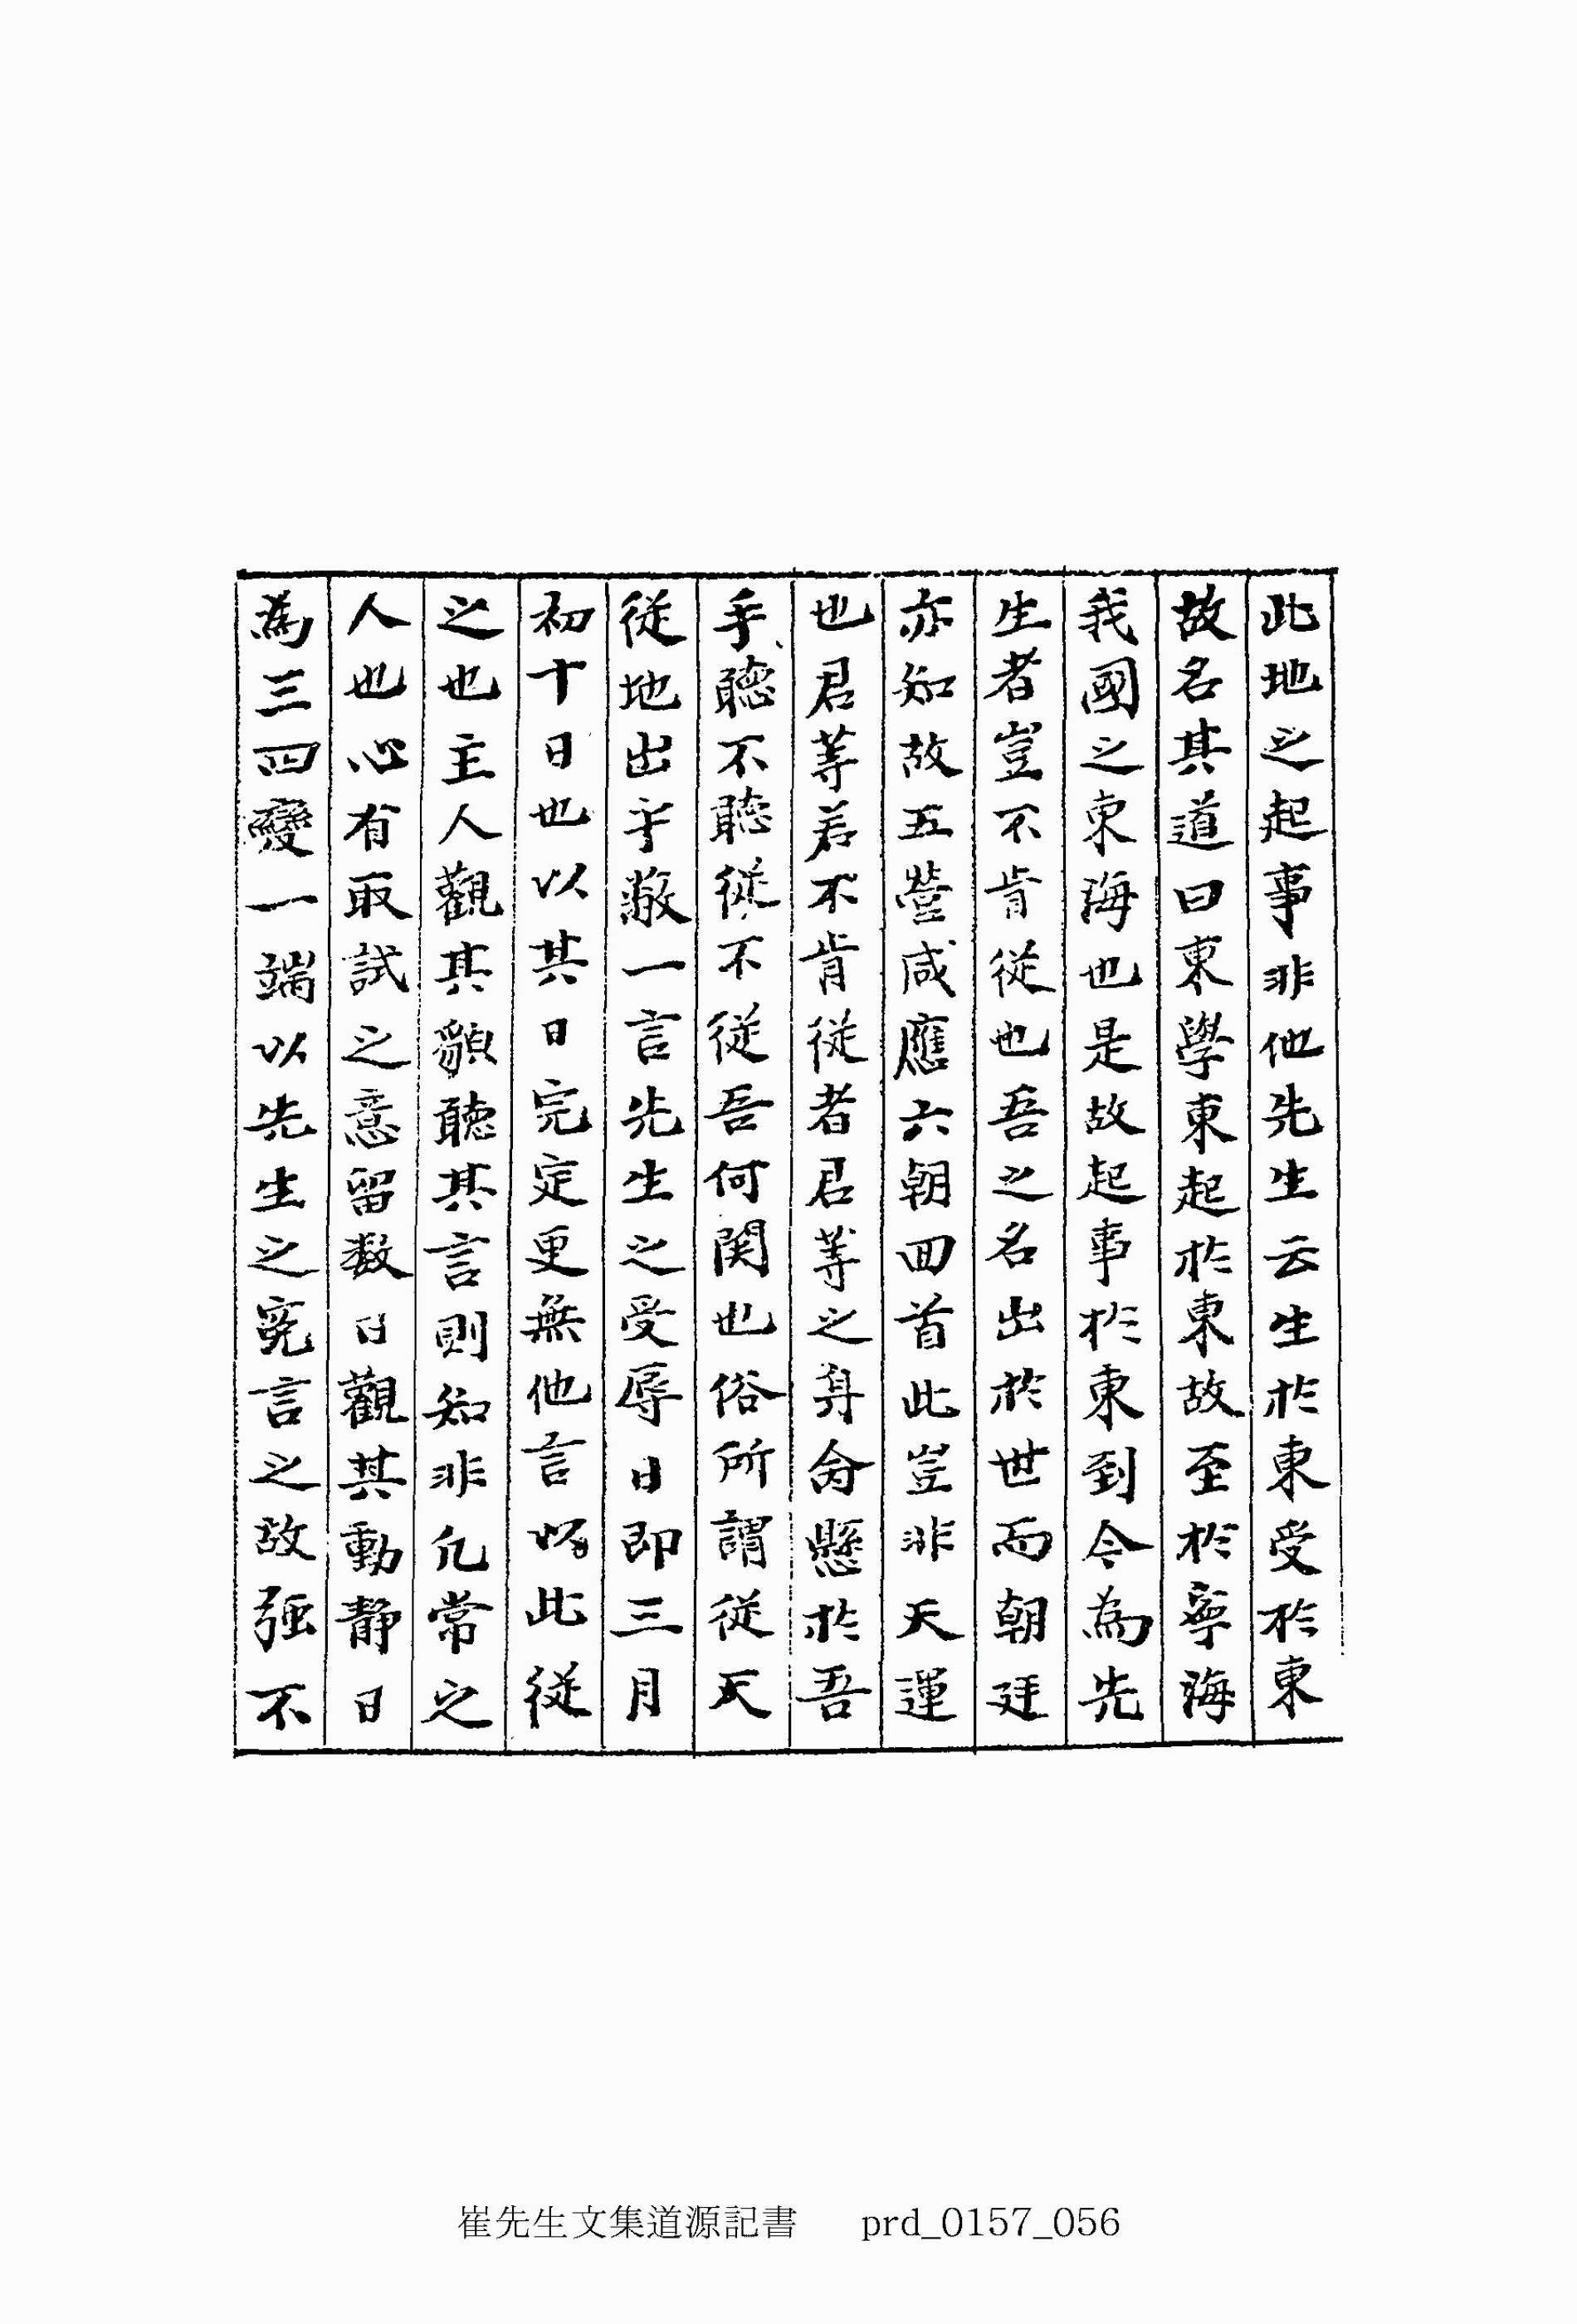 此地之起事非他先生云生於東受於東
故名其道曰東學東起於東故至於寧海
我國之東海也是故起事於東到今為先
生者豈不肯從也吾之名出於世而朝廷
亦知故五營咸應六朝回首此豈非天運
也君等若不肯從者君等之身命懸於吾
手聽不聽從不從吾何関也俗所謂從天
從地出乎敝一言先生之受辱日即三月
初十日也以其日完定更無他言以此從
之也主人觀其貌聽其言則知非凡常之
人也心有取試之意留数日觀其動静日
為三四變一端以先生之寃言之故强不
崔先生文集道源記書 prd_0157_056